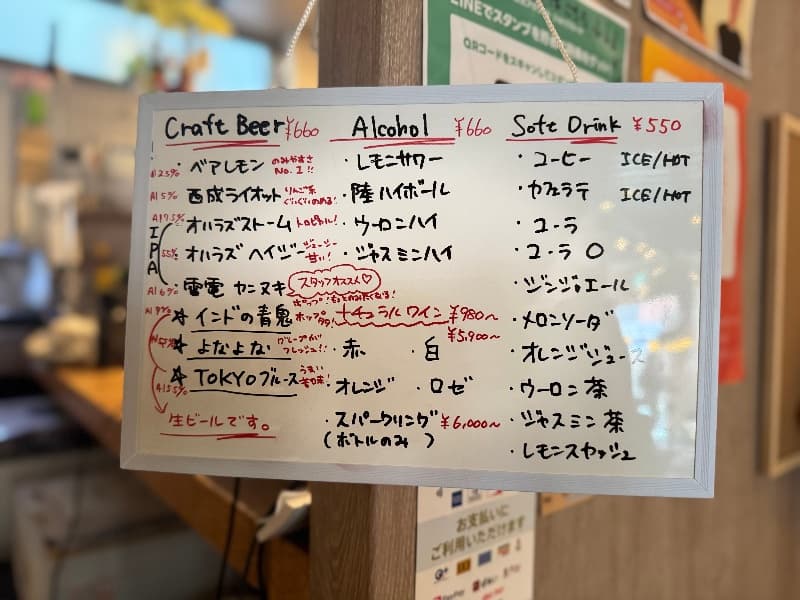 LINEでスタンプを
QRコードをスキャンして
Craft Beer ¥660
Al 2.5% ・ベアレモン のみやすさ No.1!!
Al 5% 西成ライオット りんご系 ぐいぐいのめる!
Al 7.5% ・オハラズストーム トロピカル!
IPA
5.5% ・オハラズ ヘイジー ジューシー 甘い!
Al 6% ・雷電 カンヌキ スタッフオススメ♡
☆ インドの青鬼
☆ よなよな
☆ TOKYOブルース うまい 苦味!
Al 5.5%
生ビールです。
Alcohol ¥660
・レモンサワー
・陸ハイボール
・ウーロンハイ
・ジャスミンハイ
ナチュラルワイン ¥980〜
¥5,900〜
・赤 ・白
・オレンジ ・ロゼ
・スパークリング ¥6,000〜
(ボトルのみ)
Soft Drink ¥550
・コーヒー ICE/HOT
・カフェラテ ICE/HOT
・コーラ
・コーラ 0
・ジンジャエール
・メロンソーダ
・オレンジジュース
・ウーロン茶
・ジャスミン茶
・レモンスカッシュ
お支払いに
ご利用いただけます
PayPay